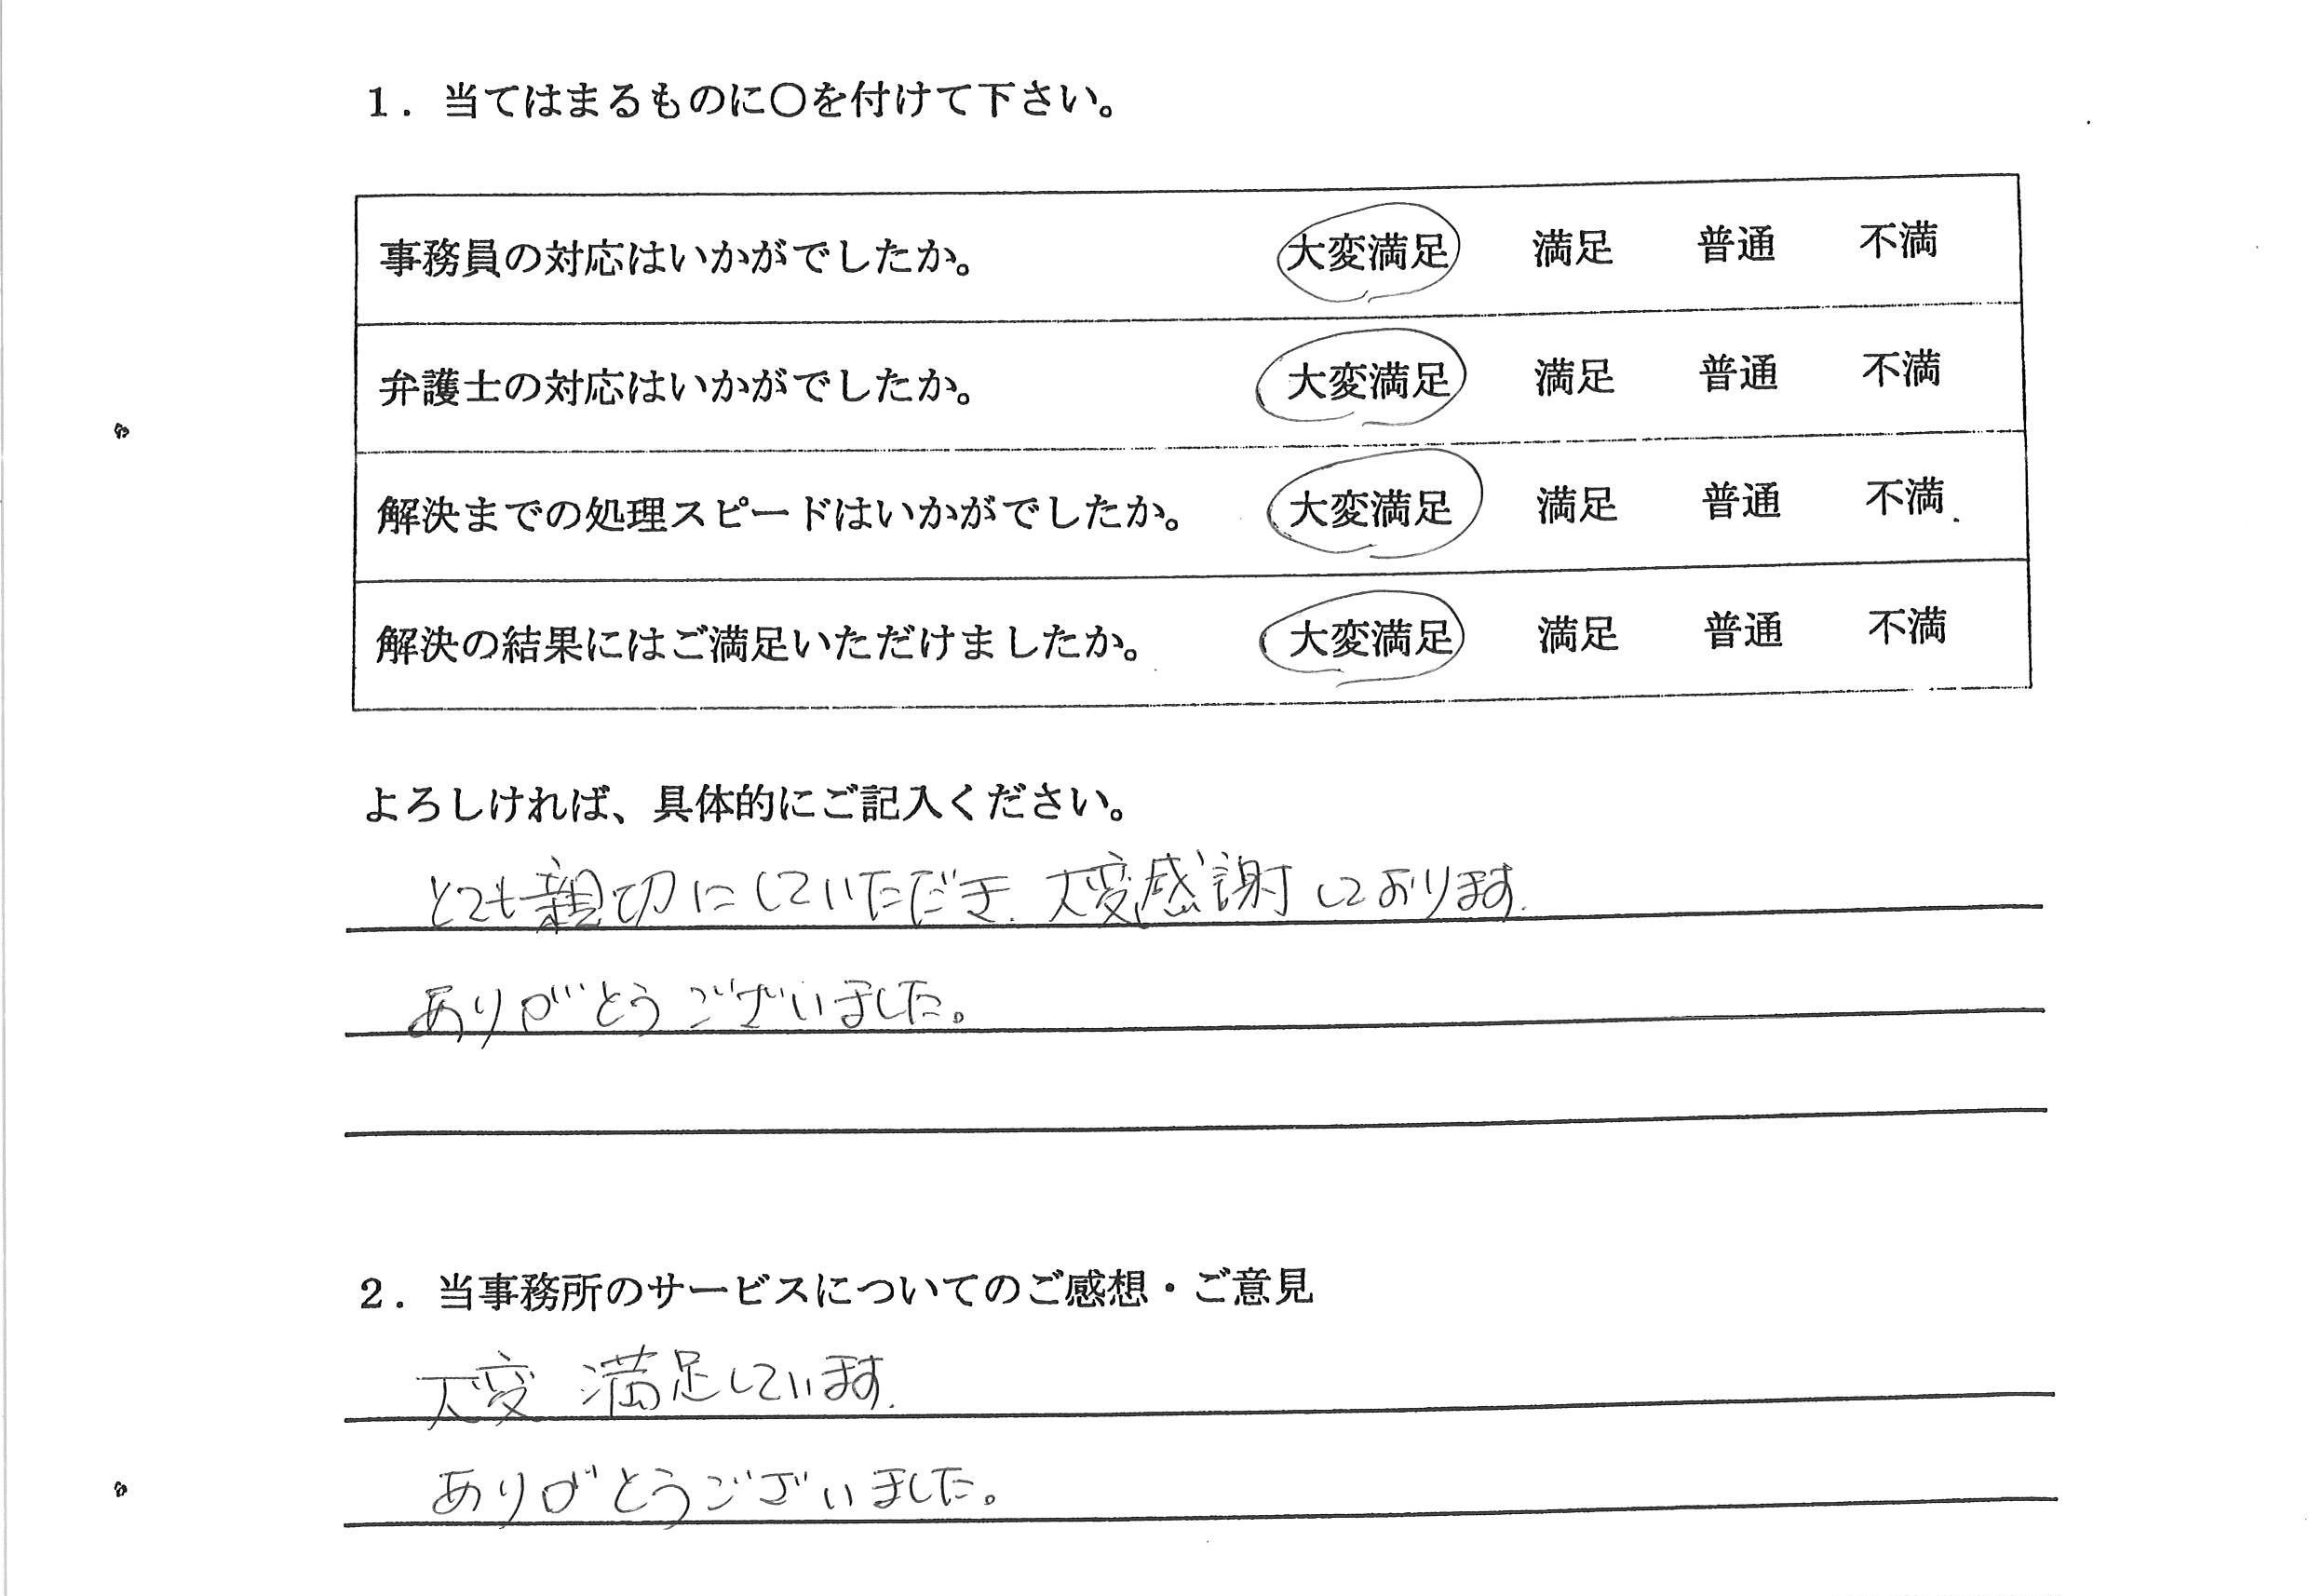 1．当てはまるものに〇を付けて下さい。
事務員の対応はいかがでしたか。 大変満足 満足 普通 不満
弁護士の対応はいかがでしたか。 大変満足 満足 普通 不満
解決までの処理スピードはいかがでしたか。 大変満足 満足 普通 不満
解決の結果にはご満足いただけましたか。 大変満足 満足 普通 不満
よろしければ、具体的にご記入ください。
とても親切にしていただき、大変感謝しております。
ありがとうございました。
2．当事務所のサービスについてのご感想・ご意見
大変満足しています。
ありがとうございました。